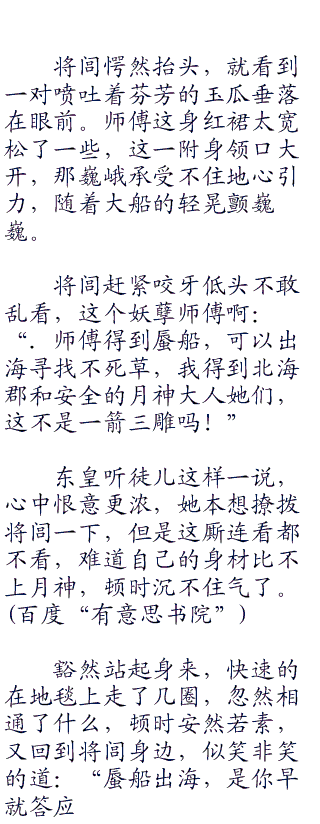 将闾愕然抬头，就看到
一对喷吐着芬芳的玉瓜垂落
在眼前。师傅这身红裙太宽
松了一些，这一附身领口大
开，那巍峨承受不住地心引
力，随着大船的轻晃颤巍
巍。
将闾赶紧咬牙低头不敢
乱看，这个妖孽师傅啊：
“．师傅得到蜃船，可以出
海寻找不死草，我得到北海
郡和安全的月神大人她们，
这不是一箭三雕吗！”
东皇听徒儿这样一说，
心中恨意更浓，她本想撩拨
将闾一下，但是这厮连看都
不看，难道自己的身材比不
上月神，顿时沉不住气了。
(百度“有意思书院”)
豁然站起身来，快速的
在地毯上走了几圈，忽然相
通了什么，顿时安然若素，
又回到将闾身边，似笑非笑
的道：“蜃船出海，是你早
就答应